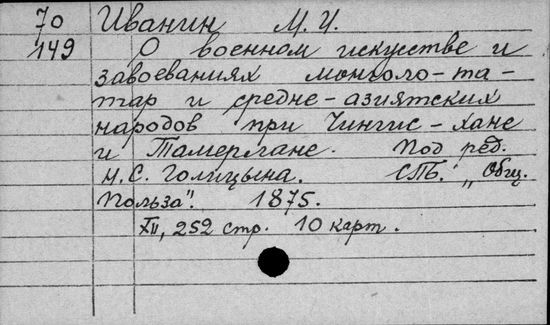 70 Иванин М.И.
149 О военном искусстве и
завоеваниях монголо-та-
тар и средне-азиятских
народов при Чингис-хане
и Тамерлане. Под ред.
Н.С. Голицына. СПб. „Общ.
польза". 1875.
XII, 252 стр. 10 карт.